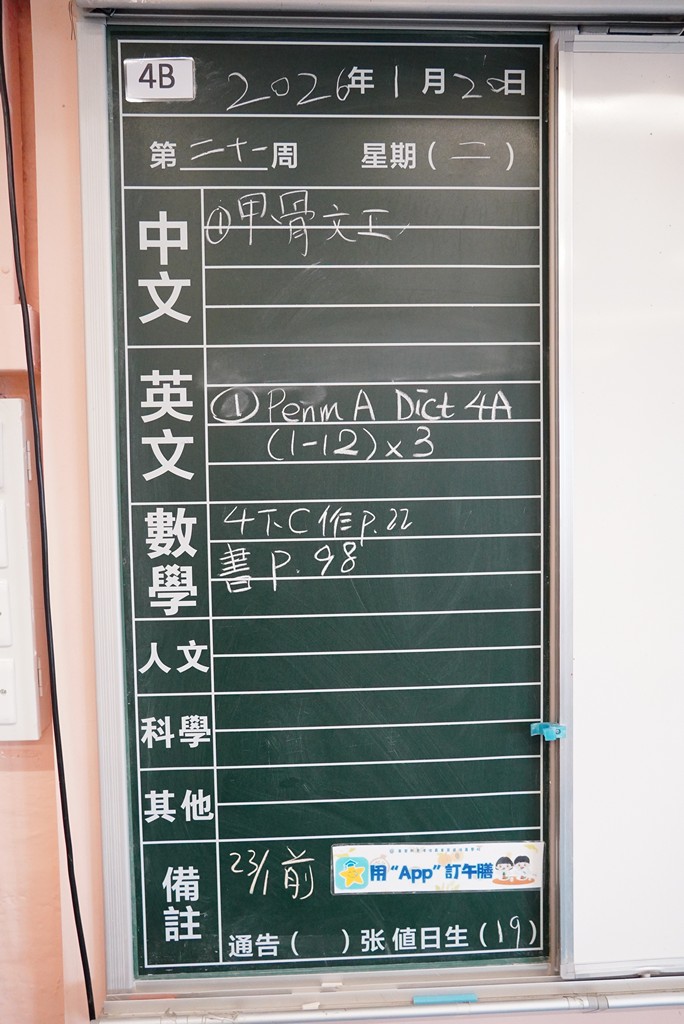 4B 2026年1月20日
第二十一周 星期(二)
中文
①甲骨文工
英文
① Penm A Dict 4A
(1-12)×3
數學
4下C作p.22
書 p.98
人文
科學
其他
備註
23/1前
用“App”訂午膳
通告( )张 值日生(19)